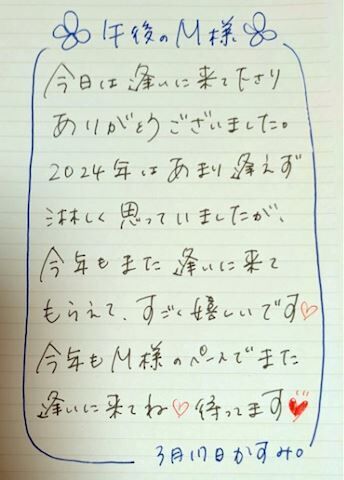 午後のM様
今日は逢いに来て下さり
ありがとうございました。
2024年はあまり逢えず
淋しく思っていましたが、
今年もまた逢いに来て
もらえて、すごく嬉しいです♡
今年もM様のペースでまた
逢いに来てね♡待ってます♥
3月17日かすみ。